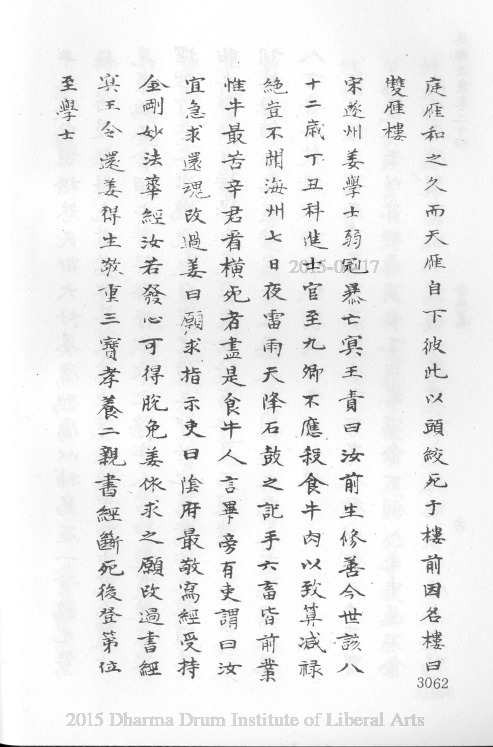 庭雁和之久而天雁自下彼此以頭絞死于樓前因名樓曰
雙雁樓
宋遂州姜學士弱冠暴亡冥王責曰汝前生修善今世該八
十二歲丁丑科進士官至九卿不應殺食牛肉以致算減祿
絕豈不聞海州七日夜雷雨天降石鼓之記乎六畜皆前業
惟牛最苦辛君看橫死者盡是食牛人言畢旁有吏謂曰汝
宜急求還魂改過姜曰願求指示吏曰陰府最敬寫經受持
金剛妙法華經汝若發心可得脫免姜依求之願改過書經
冥王令還姜得生敬重三寶孝養二親書經斷死後登第位
至學士
3062
2015-05-17
2015 Dharma Drum Institute of Liberal Arts